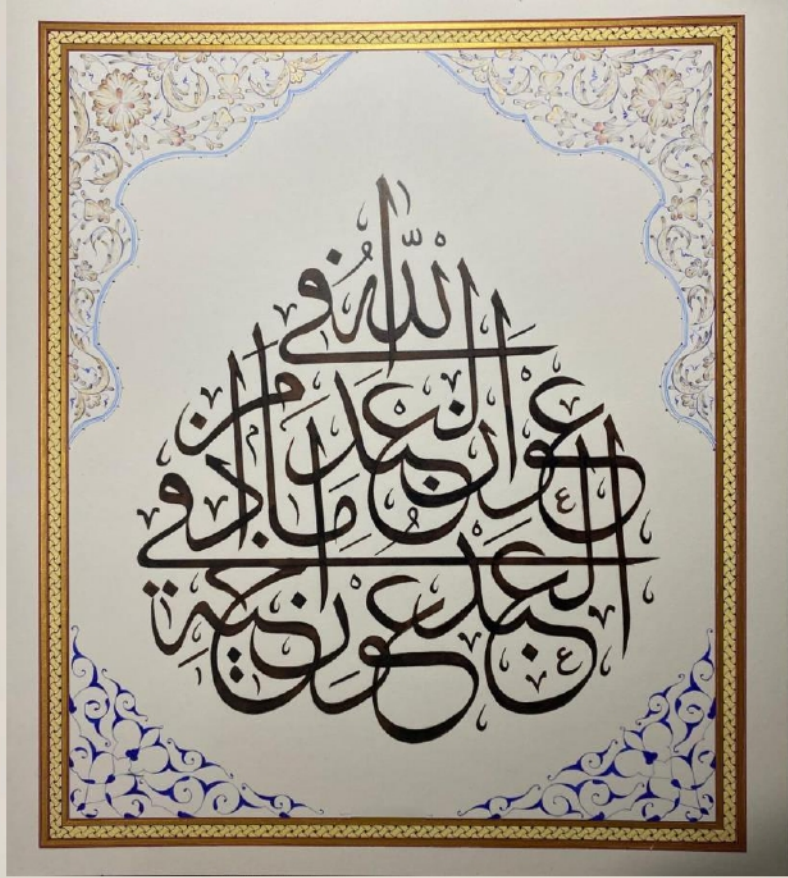 الله في
عون العبد مادام
العبد في عون اخيه